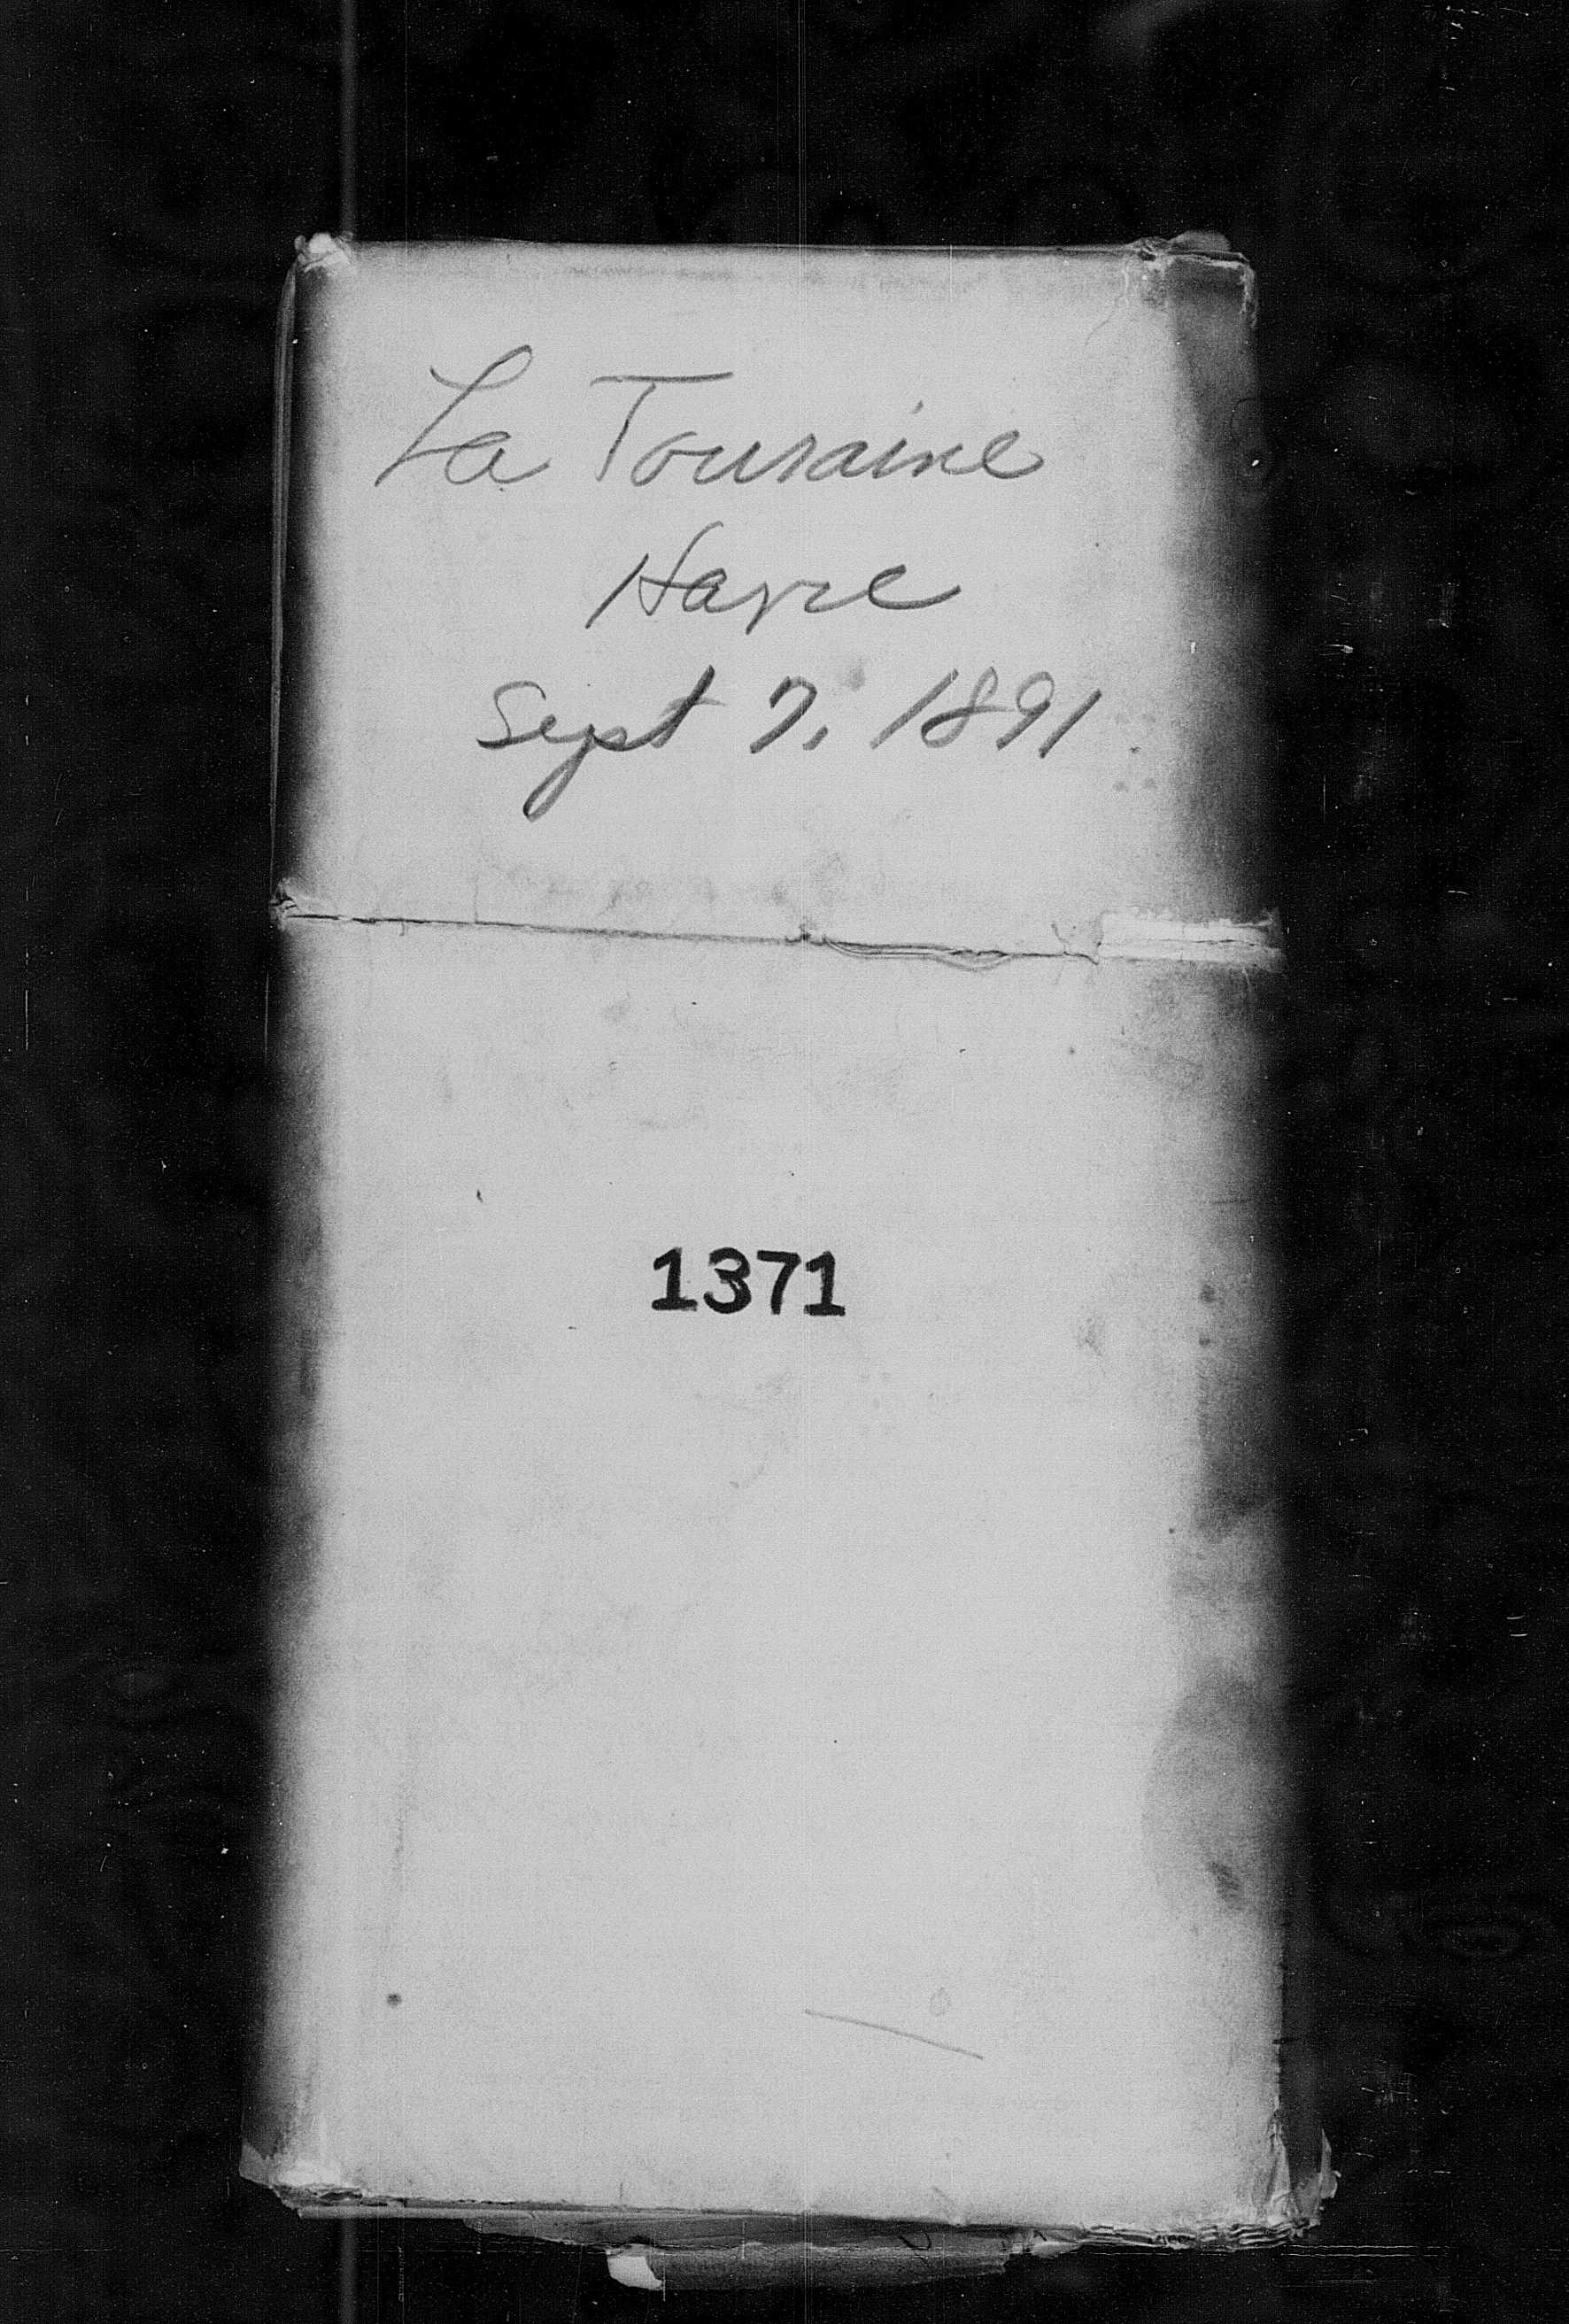 La Touraine
Havre
Sept 7, 1891
1371